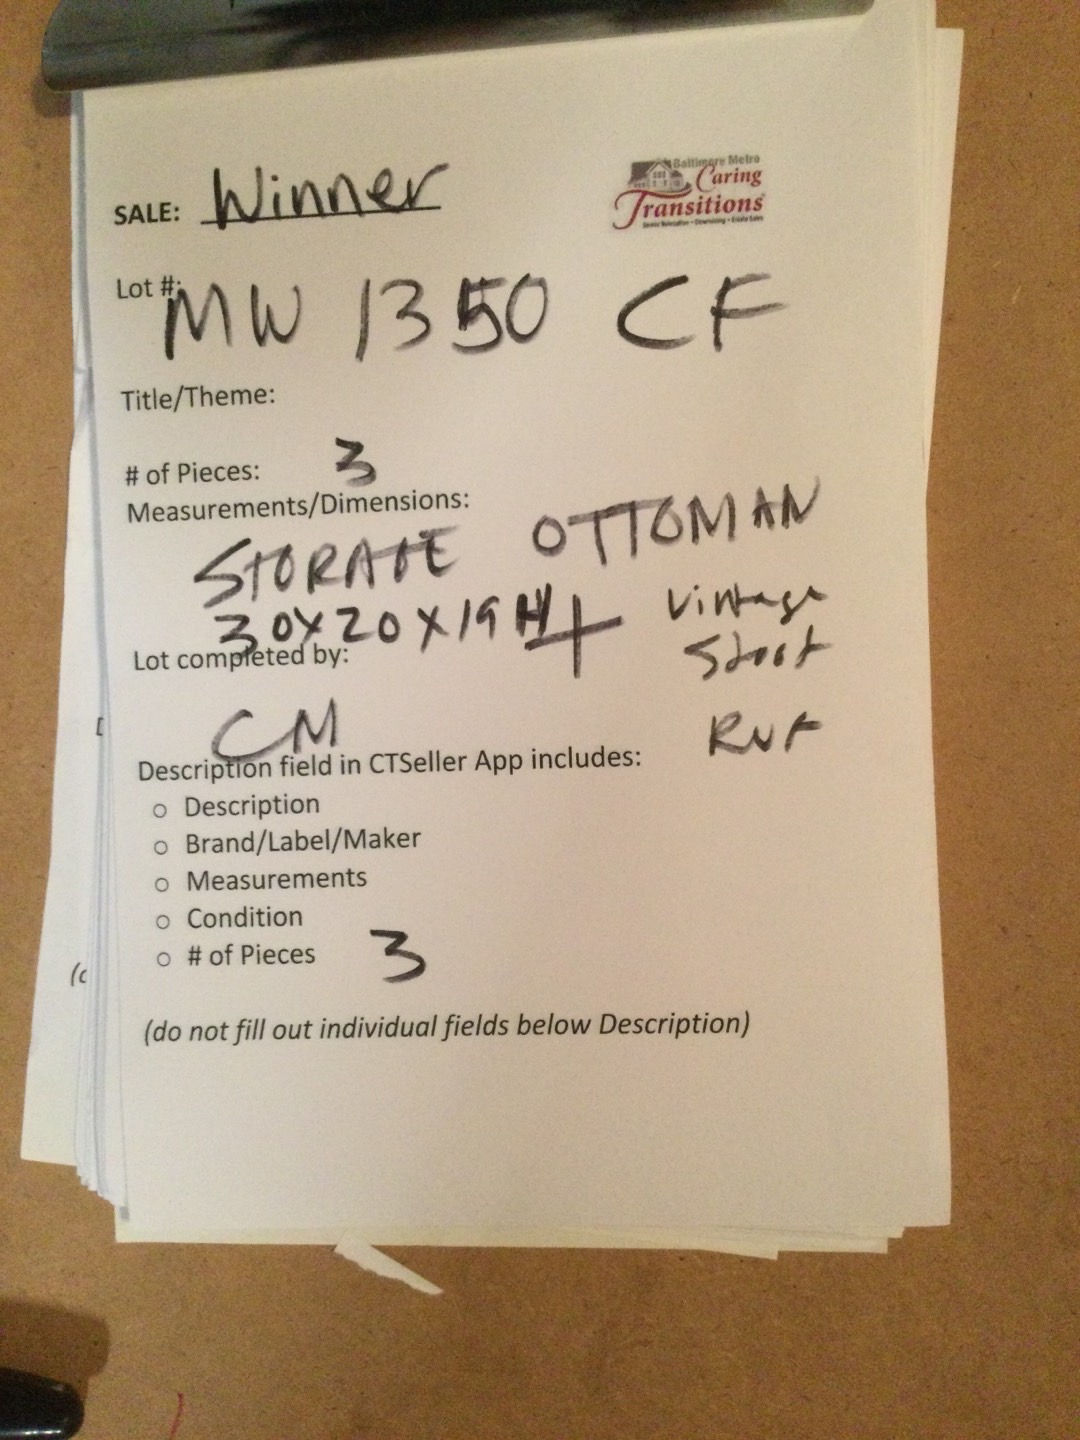 SALE: Winner
Baltimore Metro
Caring
Transitions
Lot #: MW 1350 CF
Title/Theme:
# of Pieces: 3
Measurements/Dimensions:
STORAGE OTTOMAN
30X20X19H + Vintage
Lot completed by:
CM
Description field in CTSeller App includes:
o Description
o Brand/Label/Maker
o Measurements
o Condition
o # of Pieces 3
(do not fill out individual fields below Description)